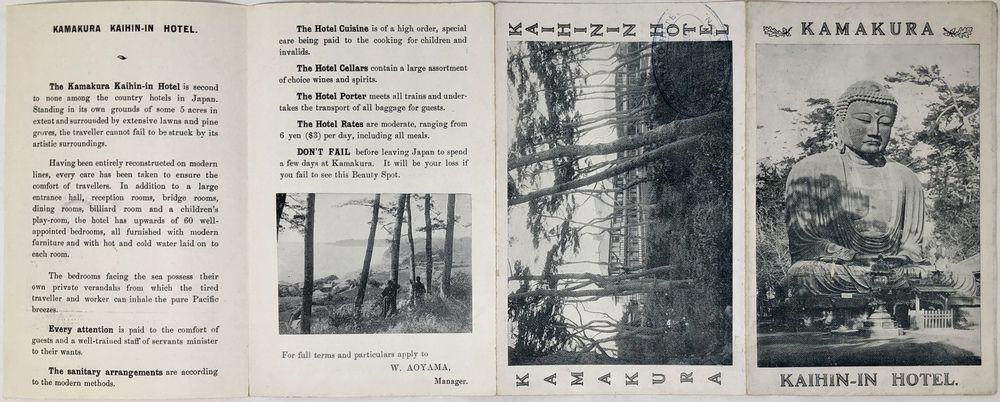 KAMAKURA KAIHIN-IN HOTEL.
The Kamakura Kaihin-in Hotel is second
to none among the country hotels in Japan.
Standing in its own grounds of some 5 acres in
extent and surrounded by extensive lawns and pine
groves, the traveller cannot fail to be struck by its
artistic surroundings.
Having been entirely reconstructed on modern
lines, every care has been taken to ensure the
comfort of travellers. In addition to a large
entrance hall, reception rooms, bridge rooms,
dining rooms, billiard room and a children's
play-room, the hotel has upwards of 60 well-
appointed bedrooms, all furnished with modern
furniture and with hot and cold water laid on to
each room.
The bedrooms facing the sea possess their
own private verandahs from which the tired
traveller and worker can inhale the pure Pacific
breezes.
Every attention is paid to the comfort of
guests and a well-trained staff of servants minister
to their wants.
The sanitary arrangements are according
to the modern methods.
The Hotel Cuisine is of a high order, special
care being paid to the cooking for children and
invalids.
The Hotel Cellars contain a large assortment
of choice wines and spirits.
The Hotel Porter meets all trains and under-
takes the transport of all baggage for guests.
The Hotel Rates are moderate, ranging from
6 yen ($3) per day, including all meals.
DON'T FAIL before leaving Japan to spend
a few days at Kamakura. It will be your loss if
you fail to see this Beauty Spot.
For full terms and particulars apply to
W. AOYAMA,
Manager.
KAIHININ HOTEL
KAMAKURA
KAMAKURA
KAIHIN-IN HOTEL.